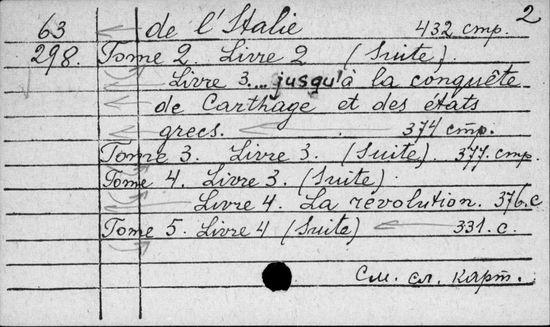 2
63 de l'Italie 432 стр.
298. Tome 2. Livre 2 (Suite).
Livre 3... jusqu'à la conquête
de Carthage et des états
grecs. 374 стр.
Tome 3. Livre 3. (Suite). 377. стр.
Tome 4. Livre 3. (Suite).
Livre 4. La révolution. 376. с
Tome 5. Livre 4 (Suite) 331. с.
См. сл. карт.